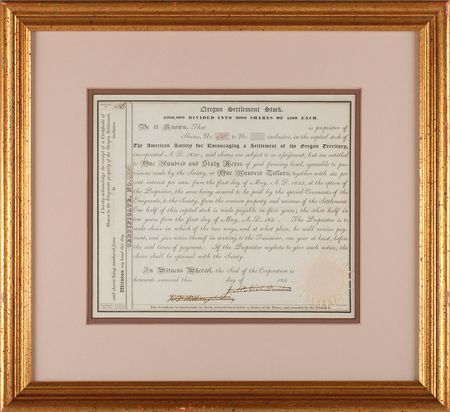 Oregon Settlement Stock.
$200,000 DIVIDED INTO 2000 SHARES OF $100 EACH.
Be it Known, That is proprietor of
Shares, No. to No. inclusive, in the capital stock of
The American Society for Encouraging a Settlement of the Oregon Territory,
incorporated A. D. 1831; said shares are subject to no assessment, but are entitled
to One Hundred and Sixty Acres of good farming land, agreeable to pro-
visions made by the Society, or One Hundred Dollars, together with six per
cent interest per ann. from the first day of May, A. D. 1832, at the option of
the Proprietor, the same being secured to be paid by the special Covenants of the
Emigrants, to the Society, from the common property and revenue of the Settlement.
One half of this capital stock is made payable in five years; the other half in
ten years from the first day of May, A. D. 183 . The Proprietor is to
make choice in which of the two ways, and at what place, he will receive pay-
ment, and give notice thereof in writing to the Treasurer, one year at least, before
the said times of payment. If the Proprietor neglects to give such notice, the
choice shall be optional with the Society.
In Witness Whereof, the Seal of the Corporation is
hereunto annexed this day of 183
CERTIFICATE, No.
I hereby acknowledge the receipt of a Certificate of
Shares in the Corporate property of the Oregon Settlement,
said shares being numbered from to inclusive.
Witness my hand this day